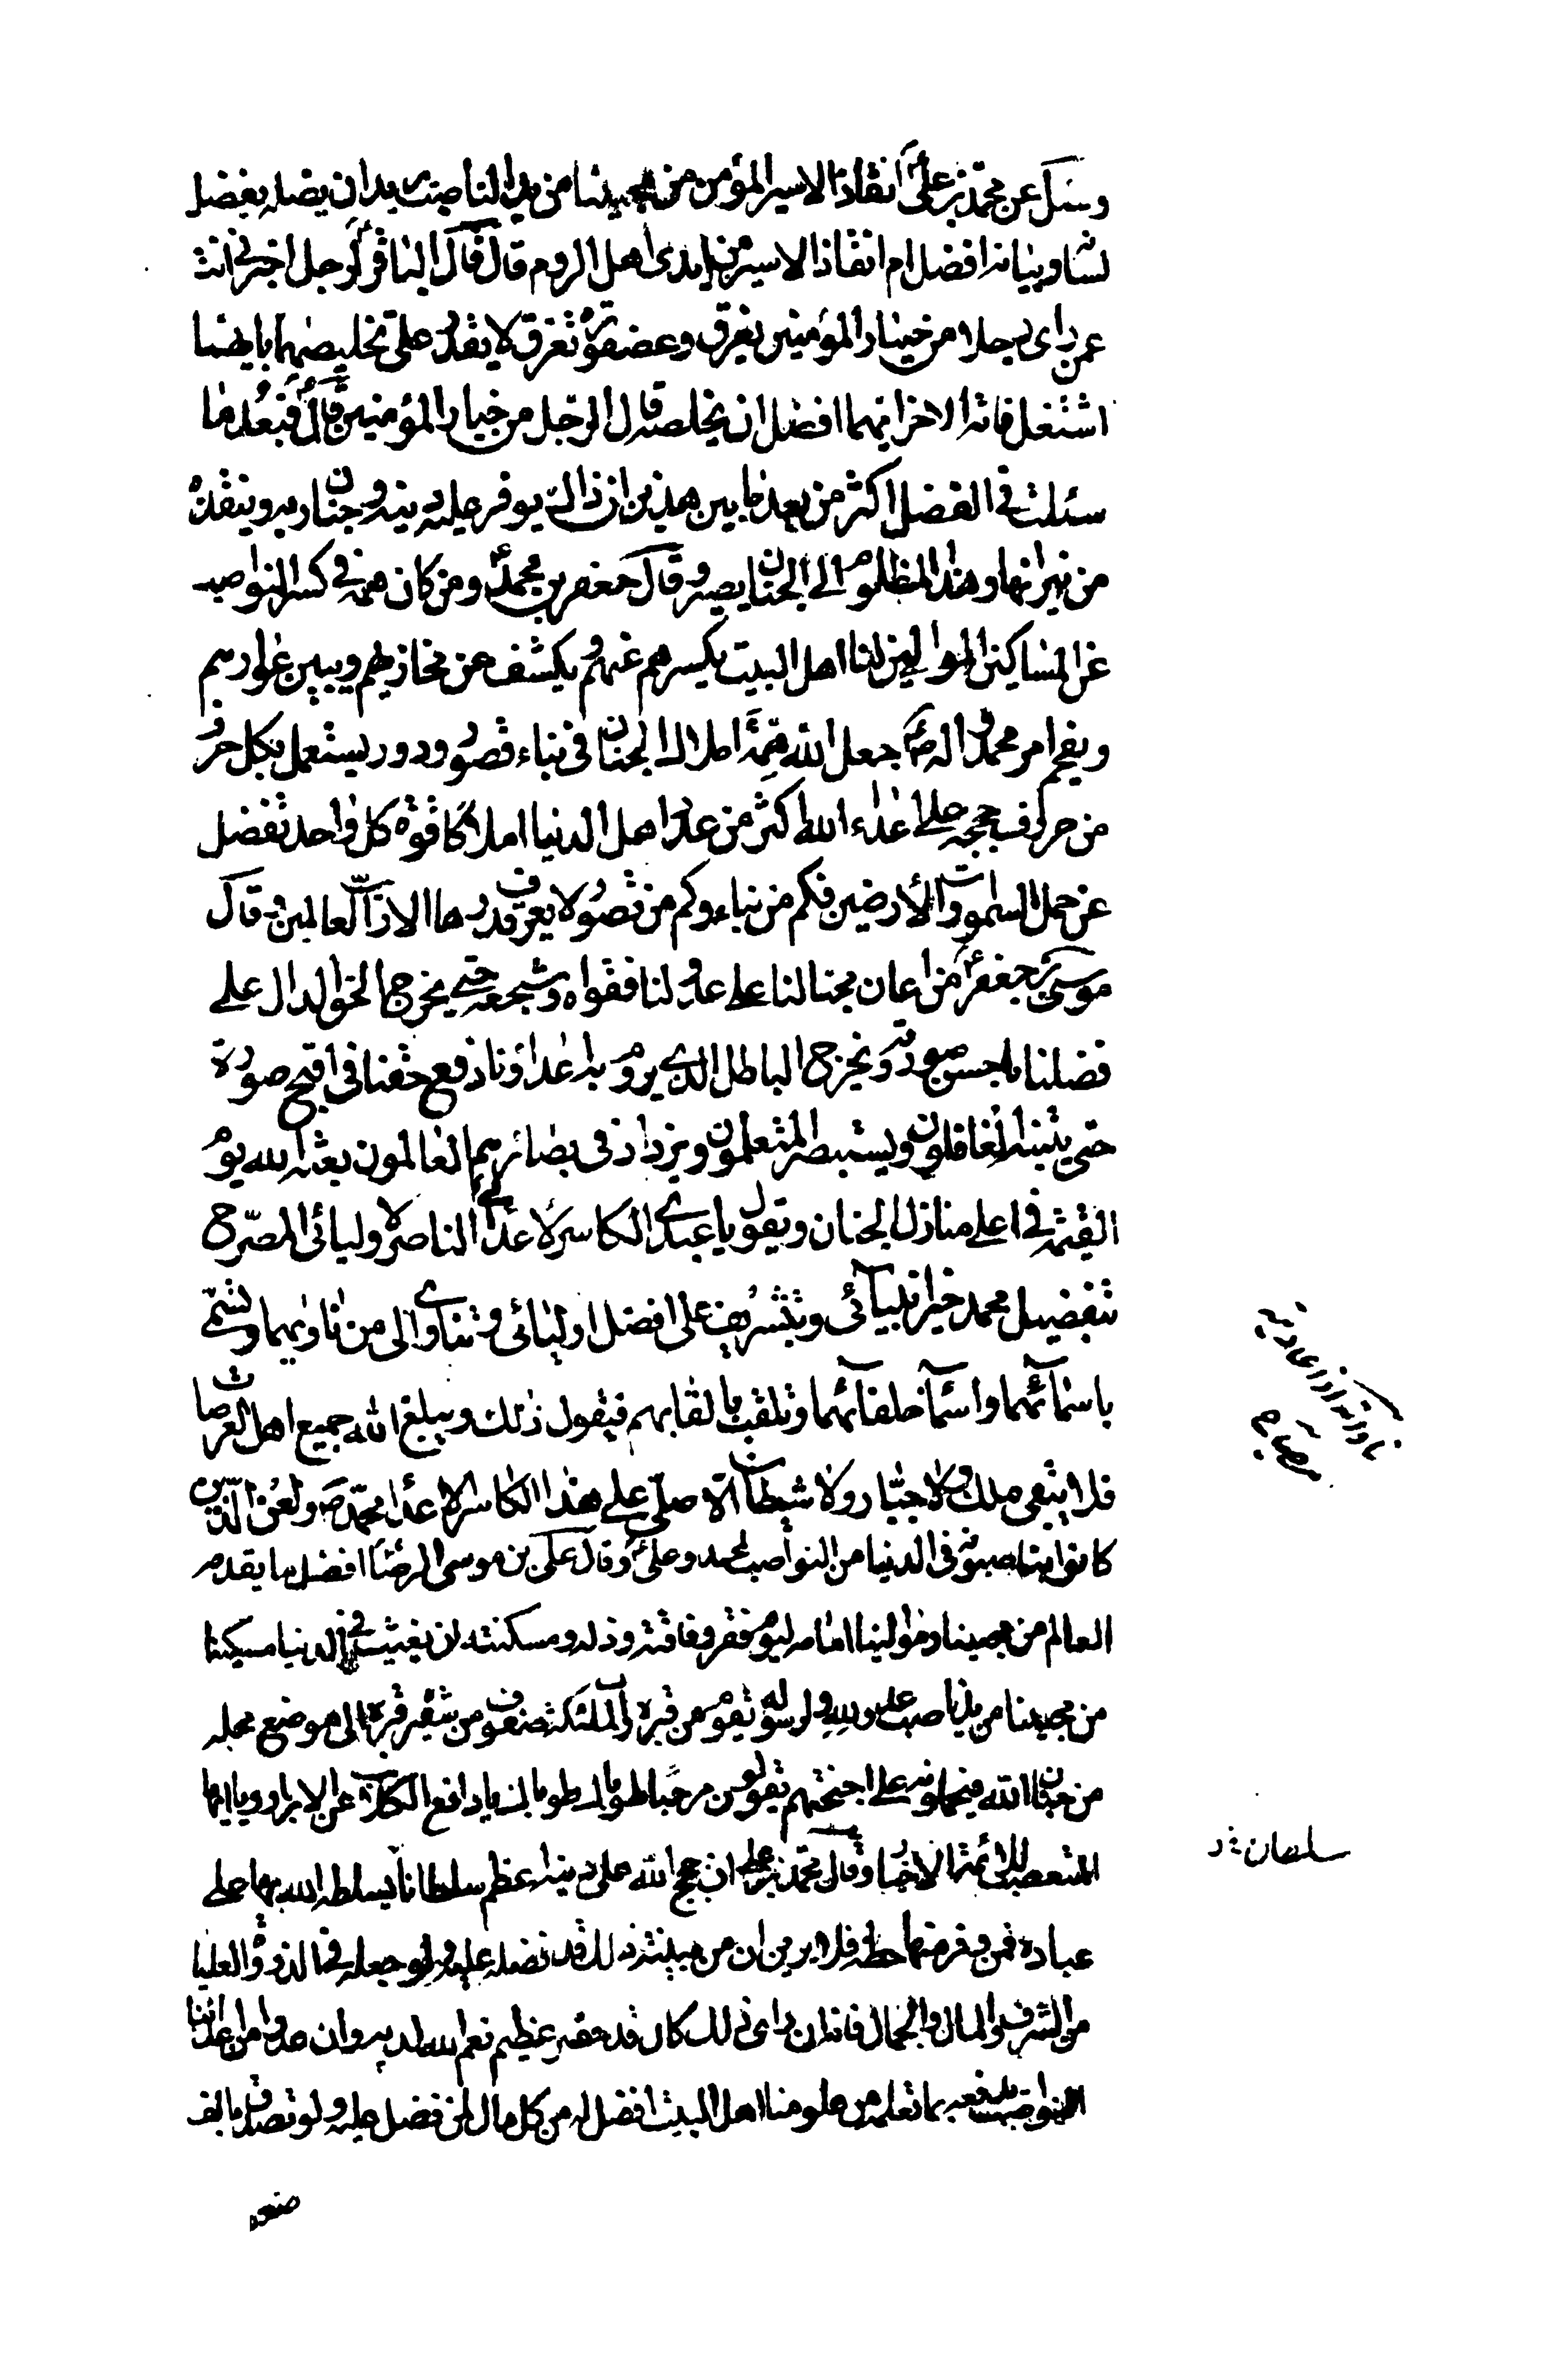 وسئل عن محمد بن علی ع انقاذ الاسیر المؤمن من محبینا من ید الناصب یرید ان یضله بفضل
لسانه وبیانه افضل ام انقاذ الاسیر من ایدی اهل الروم قال قال الباقر ع لرجل اخبرنی انت
عمن رای رجلا من خیار المؤمنین یغرق وعصفورة تغرق لا یقدر علی تخلیصهما بایهما
اشتغل فاته الاخر ایهما افضل ان یخلصه قال الرجل من خیار المؤمنین قال ع فبعد ما
سئلت فی الفضل اکثر من بعد ما بین هذین ان ذاک یوفر علیه دینه وجنان ربه وینقذه
من نیرانها وهذا المظلوم الی الجنان یصیر وقال جعفر بن محمد ع ومن کان همه فی کسر النواصب
عن المساکین الموالین لنا اهل البیت یکسرهم عنهم ویکشف عن مخازیهم ویبین عوارهم
ویفخم امر محمد واله ص جعل الله همة املاک الجنان فی بناء قصوره ودوره یستعمل بکل حرف
من حروف حججه علی اعداء الله اکثر من عدد اهل الدنیا املاکا قوة کل واحد تفضل
عن حمل السموات والأرضین فکم من بناء وکم من قصور لا یعرف قدرها الا رب العالمین وقال
موسی بن جعفر ع من اعان محبا لنا علی عدو لنا فقواه وشجعه حتی یخرج الحق الدال علی
فضلنا باحسن صورته ویخرج الباطل الذی یروم به اعداؤنا دفع حقنا فی اقبح صورة
حتی یتنبه الغافلون ویستبصر المتعلمون ویزداد فی بصائرهم العالمون بعثه الله یوم
القیمة فی اعلی منازل الجنان ویقول یا عبدی الکاسر لأعدائی الناصر لاولیائی المصرح
بتفضیل محمد خیر انبیائی وبتشریف علی افضل اولیائی وتناوی الی من ناواهما وتسمی
باسمائهما واسماء خلفائهما وتلقب بالقابهم فیقول ذلک ویبلغ الله جمیع اهل العرصات
فلا یبقی ملک ولا جبار ولا شیطان الا صلی علی هذا الکاسر لاعداء محمد ص ولعن الذین
کانوا یناصبونه فی الدنیا من النواصب لمحمد وعلی ع وقال علی بن موسی الرضا ع افضل ما یقدمه
العالم من محبینا وموالینا امامه لیوم فقره وفاقته وذله ومسکنته ان یغیث فی الدنیا مسکینا
من محبینا من ید ناصب عدو لله ولرسوله یقوم من قبره والملئکة صفوف من شفیر قبره الی موضع محله
من جنان الله فیحملونه علی اجنحتهم یقولون مرحبا طوباک طوباک یا دافع الکلاب عن الابرار ویا ایها
المتعصب للائمة الاخیار وقال محمد بن علی ان حجج الله علی دینه اعظم سلطانا یسلطه الله بها علی
عباده فمن وفر منها حظه فلا یرین ان من منعه ذلک قد فضله علیه ولو جعله فی الذروة العلیا
من الشرف والمال والجمال فانه ان رای ذلک کان قد حقر عظیم نعم الله لدیه وان عدوا من اعدائنا
النواصب یدفعه بما تعلمه من علومنا اهل البیت افضل له من کل مال لمن فضل علیه ولو تصدق بالف
ضعفه
سلطان